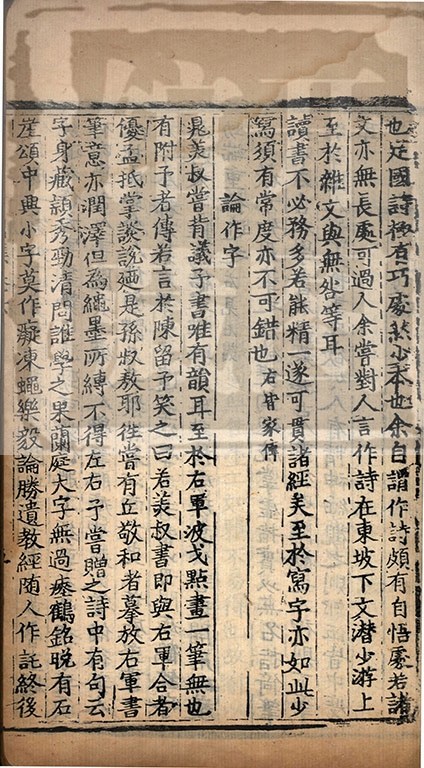 也定國詩極有巧處然少本也余自謂作詩頗有自悟處若諸
文亦無長處可過人余嘗對人言作詩在東坡下文潛少游上
至於雜文與無咎等耳
讀書不必務多若能精一遂可貫諸經矣至於寫字亦如此少
寫須有常度亦不可錯也右皆家傳
論作字
晁美叔嘗背議予書唯有韻耳至於右軍波戈點畫一筆無也
有附予者傳若言於陳留予笑之曰若美叔書即與右軍合者
優孟抵掌談說廼是孫叔敖耶往嘗有丘敬和者摹放右軍書
筆意亦潤澤但為繩墨所縛不得左右予嘗贈之詩中有句云
字身藏穎秀勁清問誰學之果蘭庭大字無過瘞鶴銘晚有石
崖頌中興小字莫作癡凍蠅樂毅論勝遺教經隨人作計終後